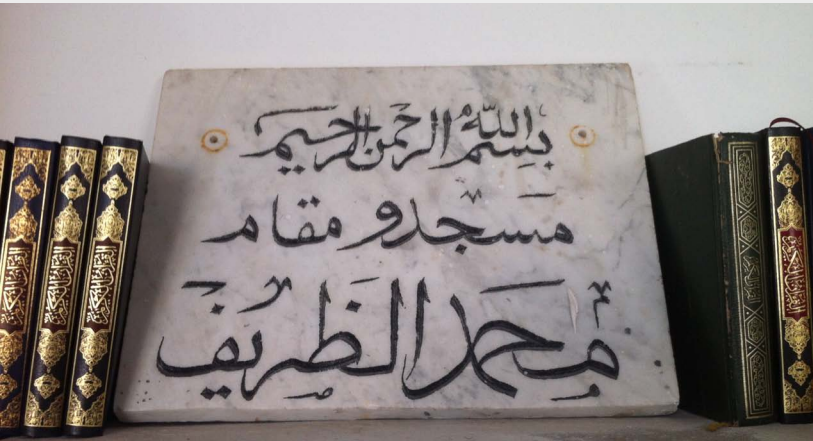 بسم الله الرحمن الرحيم
مسجد و مقام
محمد الظريف